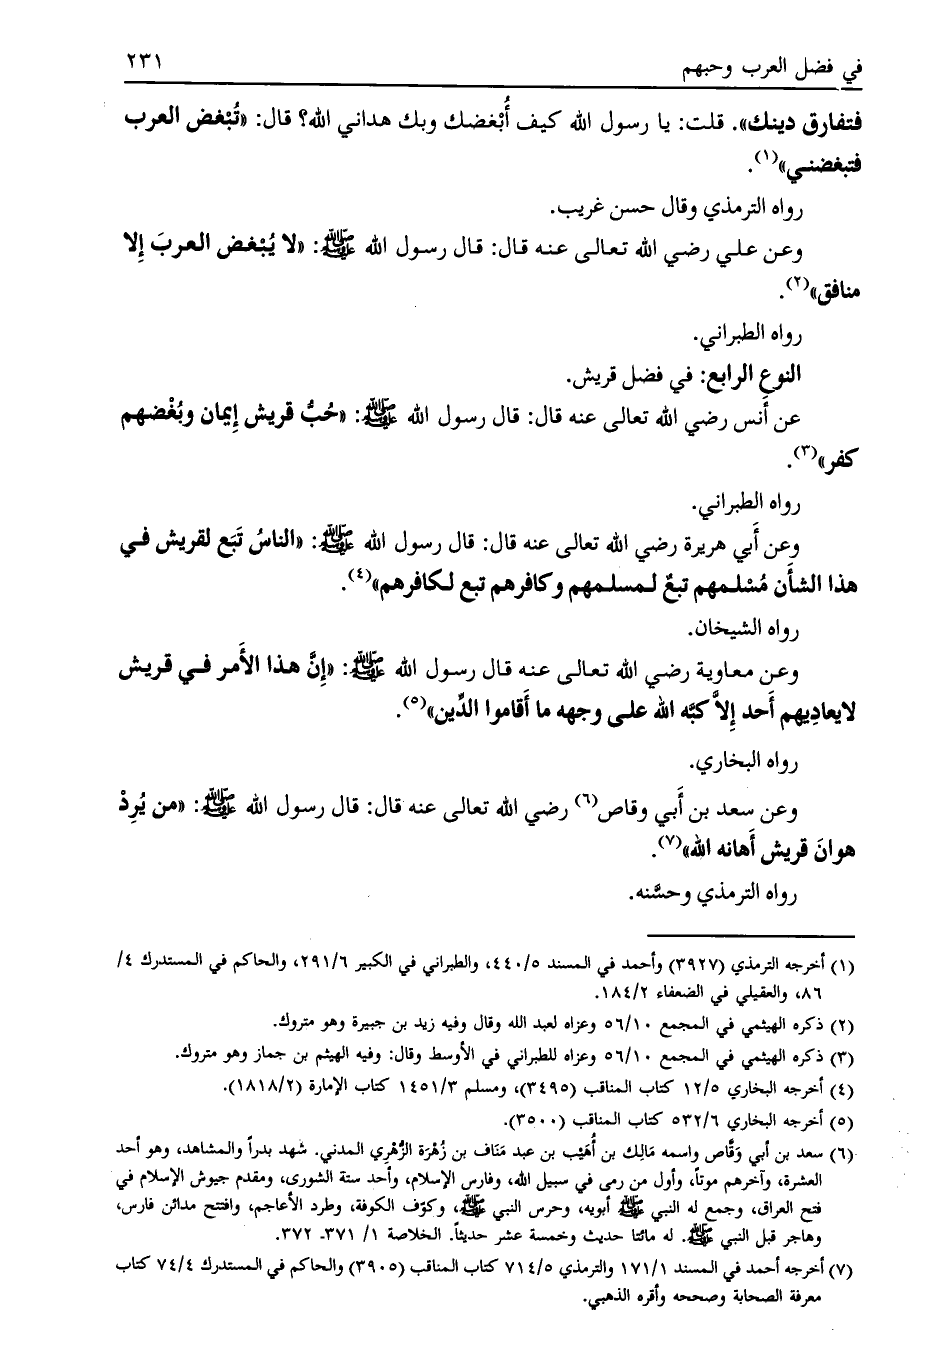 في فضل العرب وحبهم ٢٣١
فتفارق دينك». قلت: يا رسول الله كيف أُبْغضك وبك هداني الله؟ قال: «تُبْغض العرب
فتبغضني»(١).
رواه الترمذي وقال حسن غريب.
وعن علي رضي الله تعالى عنه قال: قال رسول الله ﷺ: «لا يُبْغض العربَ إلا
منافق»(٢).
رواه الطبراني.
النوع الرابع: في فضل قريش.
عن أَنس رضي الله تعالى عنه قال: قال رسول الله ﷺ: «حُبُّ قريش إِيمان وبُغْضهم
كفر»(٣).
رواه الطبراني.
وعن أَبي هريرة رضي الله تعالى عنه قال: قال رسول الله ﷺ: «الناسُ تَبَع لقريش في
هذا الشأَن مُسْلمهم تبعٌ لمسلمهم وكافرهم تبع لكافرهم»(٤).
رواه الشيخان.
وعن معاوية رضي الله تعالى عنه قال رسول الله ﷺ: «إِنَّ هذا الأَمر في قريش
لايعادِيهم أَحد إِلاَّ كبَّه الله على وجهه ما أَقاموا الدِّين»(٥).
رواه البخاري.
وعن سعد بن أَبي وقاص(٦) رضي الله تعالى عنه قال: قال رسول الله ﷺ: «من يُرِدْ
هوانَ قريش أَهانه الله»(٧).
رواه الترمذي وحسَّنه.
(١) أخرجه الترمذي (٣٩٢٧) وأحمد في المسند ٤٤٠/٥، والطبراني في الكبير ٢٩١/٦، والحاكم في المستدرك ٤/
٨٦، والعقيلي في الضعفاء ١٨٤/٢.
(٢) ذكره الهيثمي في المجمع ٥٦/١٠ وعزاه لعبد الله وقال وفيه زيد بن جبيرة وهو متروك.
(٣) ذكره الهيثمي في المجمع ٥٦/١٠ وعزاه للطبراني في الأوسط وقال: وفيه الهيثم بن جماز وهو متروك.
(٤) أخرجه البخاري ١٢/٥ كتاب المناقب (٣٤٩٥)، ومسلم ١٤٥١/٣ كتاب الإمارة (١٨١٨/٢).
(٥) أخرجه البخاري ٥٣٢/٦ كتاب المناقب (٣٥٠٠).
(٦) سعد بن أبي وَقَّاص واسمه مَالِك بن أُهَيْب بن عبد مَنَاف بن زُهْرَة الزُّهْرِي المدني. شهد بدراً والمشاهد، وهو أحد
العشرة، وآخرهم موتاً، وأول من رمى في سبيل الله، وفارس الإسلام، وأحد ستة الشورى، ومقدم جيوش الإسلام في
فتح العراق، وجمع له النبي ﷺ أبويه، وحرس النبي ﷺ، وكوّف الكوفة، وطرد الأعاجم، وافتتح مدائن فارس،
وهاجر قبل النبي ﷺ. له مائتا حديث وخمسة عشر حديثاً. الخلاصة ١/ ٣٧١- ٣٧٢.
(٧) أخرجه أحمد في المسند ١٧١/١ والترمذي ٧١٤/٥ كتاب المناقب (٣٩٠٥) والحاكم في المستدرك ٧٤/٤ كتاب
معرفة الصحابة وصححه وأقره الذهبي.